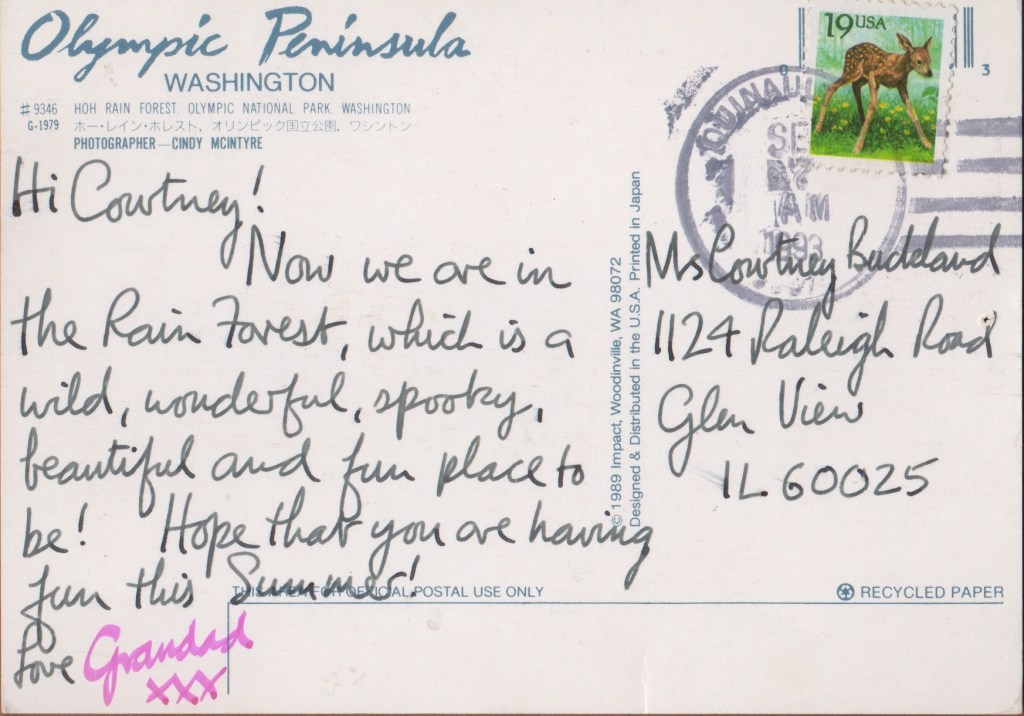 Olympic Peninsula
WASHINGTON
#9346 HOH RAIN FOREST, OLYMPIC NATIONAL PARK, WASHINGTON
G-1979 ホー・レイン・ホレスト, オリンピック国立公園, ワシントン
PHOTOGRAPHER—CINDY MCINTYRE
Hi Courtney!
Now we are in
the Rain Forest, which is a
wild, wonderful, spooky,
beautiful and fun place to
be! Hope that you are having
fun this Summer!
Love Grandad
xxx
© 1989 Impact, Woodinville, WA 98072
Designed & Distributed in the U.S.A. Printed in Japan
19 USA
3
AM
1993
Ms Courtney Buckland
1124 Raleigh Road
Glen View
IL 60025
POSTAL USE ONLY
RECYCLED PAPER